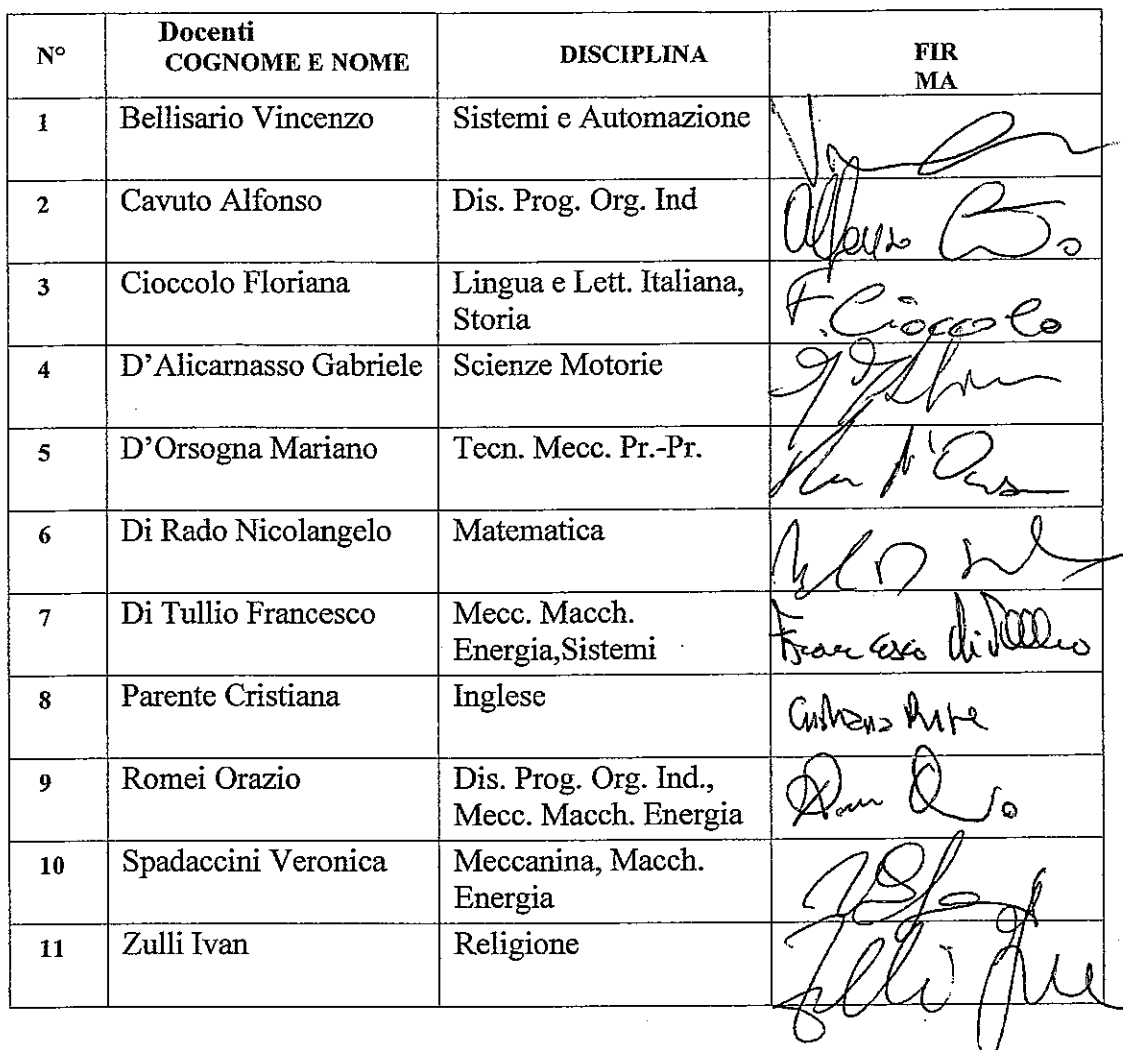 N° Docenti COGNOME E NOME DISCIPLINA FIR MA
1 Bellisario Vincenzo Sistemi e Automazione
2 Cavuto Alfonso Dis. Prog. Org. Ind Alfonso
3 Cioccolo Floriana Lingua e Lett. Italiana, F. Cioccolo
Storia
4 D'Alicarnasso Gabriele Scienze Motorie
5 D'Orsogna Mariano Tecn. Mecc. Pr.-Pr.
6 Di Rado Nicolangelo Matematica
7 Di Tullio Francesco Mecc. Macch. Francesco Di Tullio
Energia,Sistemi
8 Parente Cristiana Inglese
9 Romei Orazio Dis. Prog. Org. Ind.,
Mecc. Macch. Energia
10 Spadaccini Veronica Meccanina, Macch.
Energia
11 Zulli Ivan Religione Zulli